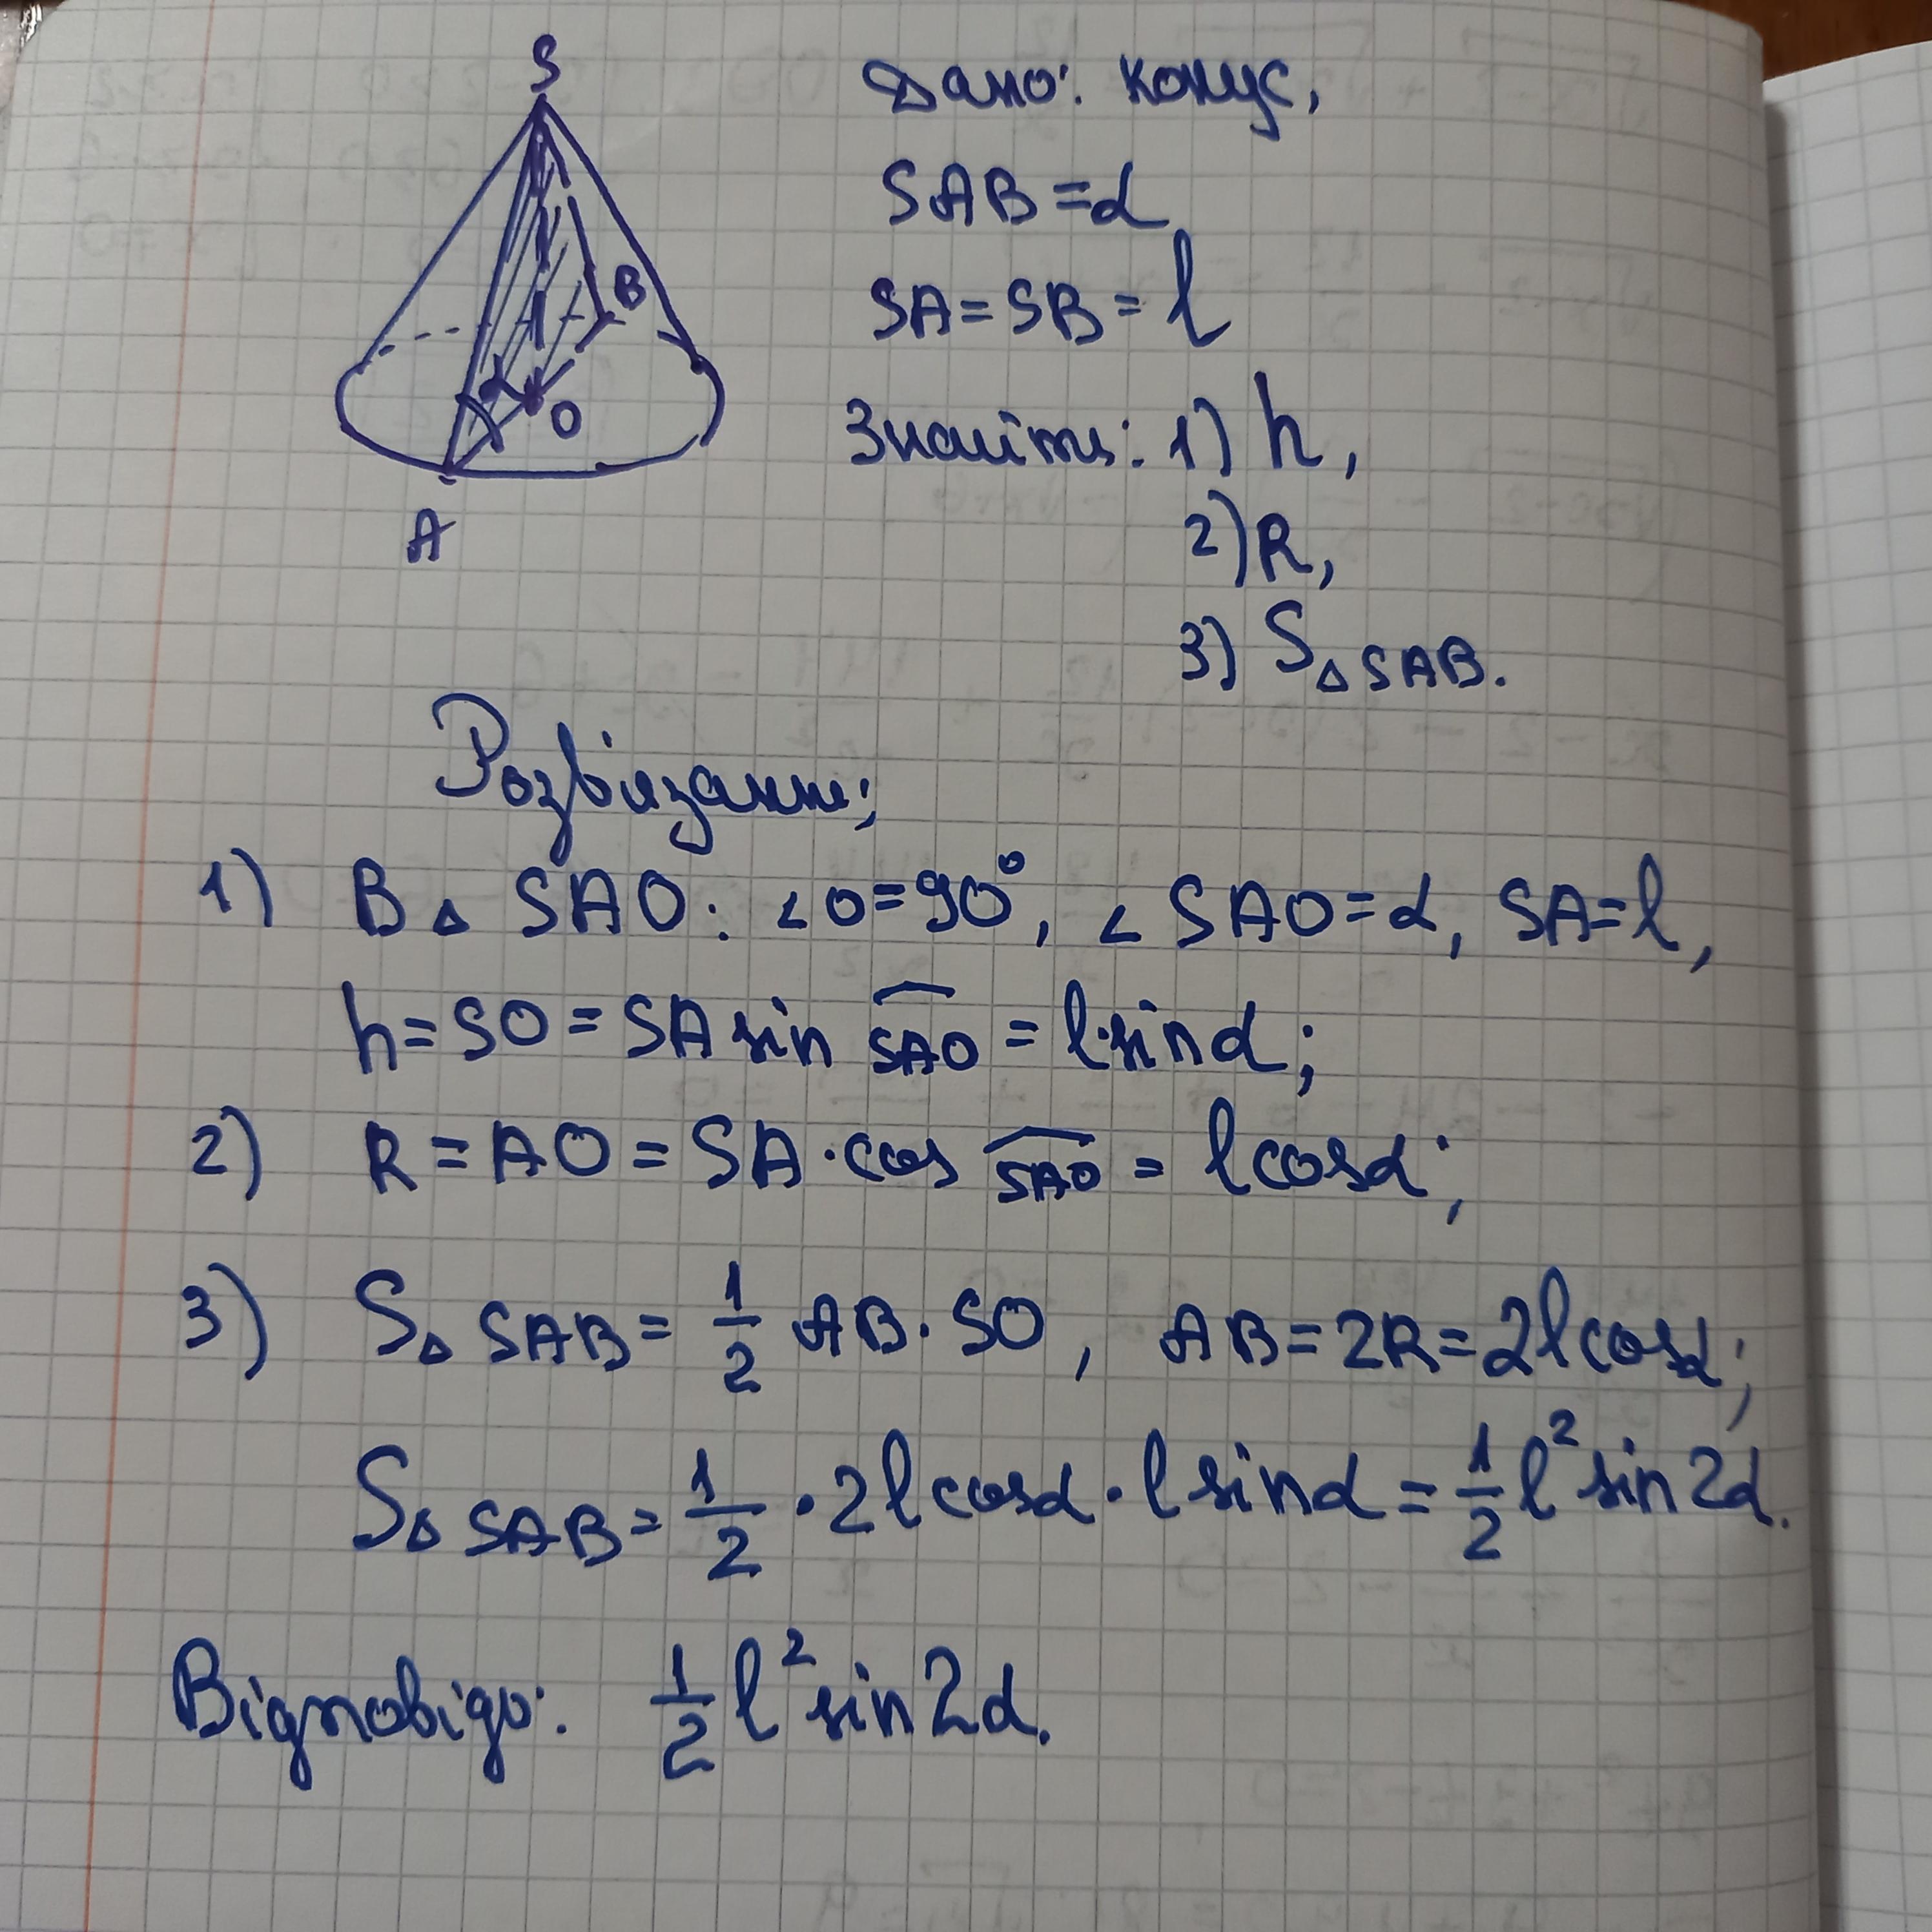 S
B
O
A
Дано: конус,
SAB = α
SA = SB = l
Знайти: 1) h,
2) R,
3) S△SAB.
Розв'язання:
1) В △ SAO: ∠O = 90°, ∠SAO = α, SA = l,
h = SO = SA sin SAO = l·sin α;
2) R = AO = SA · cos SAO = l cos α;
3) S△SAB = 1/2 AB · SO, AB = 2R = 2l cos α;
S△SAB = 1/2 · 2l cos α · l sin α = 1/2 l² sin 2α.
Відповідь: 1/2 l² sin 2α.